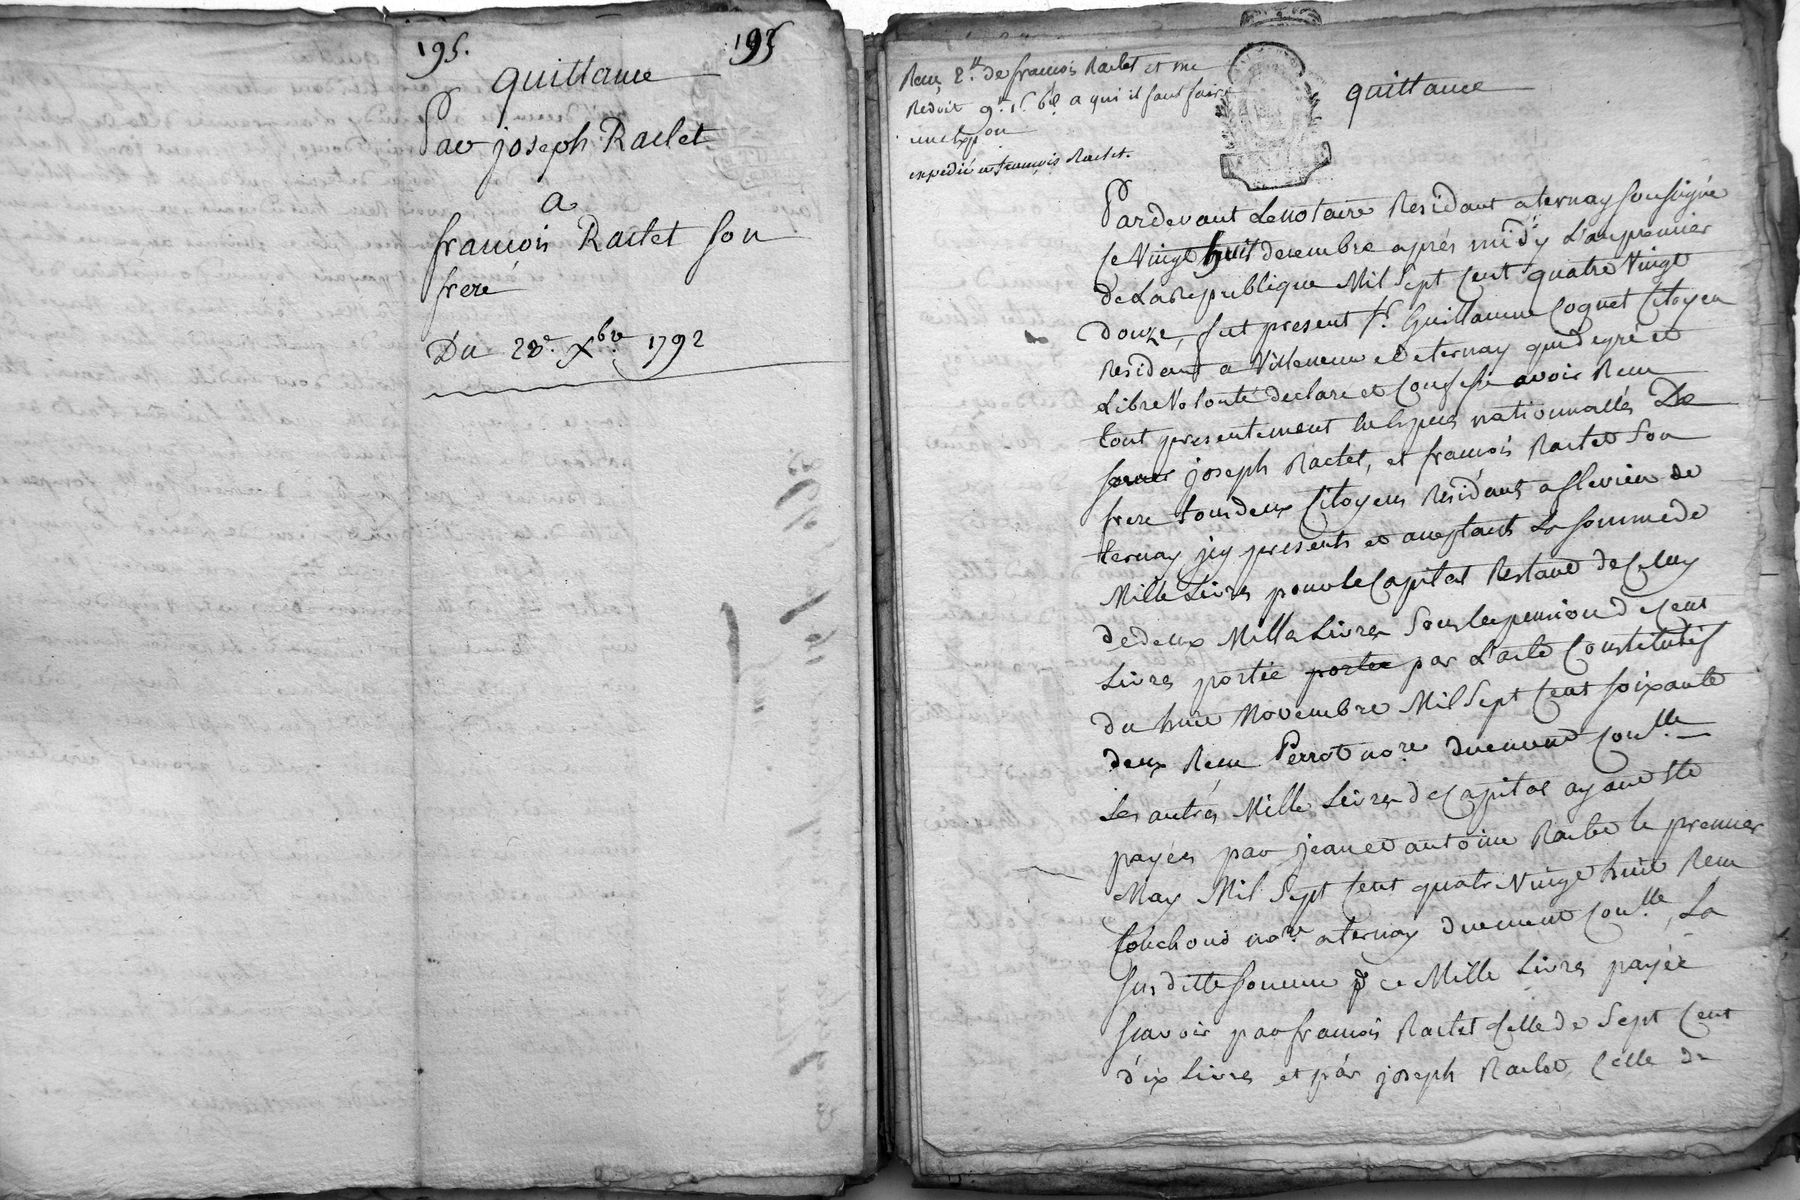 195. 195
quittance
Par joseph Raclet
a
francois Raclet son
frere
Du 28e. Xbre 1792
Recu 2.tt de francois Raclet et me
Redoit 9.tt 1s 6d a qui il faut faire
une expon
expedié a francois Raclet.
quittance
Pardevant Le notaire Residant a ternay soussigné
Ce Vingt huit decembre aprés midy L'an premier
de La Republique Mil Sept Cent quatre Vingt
douze, fut present sr. Guillaume Coquet Citoyen
Residant a Villeneuve de ternay qui de gré et
Libre Volonté declare et Confesse avoir Recu
tout presentement en especes nationnalles De
joseph Raclet, et francois Raclet Son
frere tous deux Citoyens Residants a flevieu de
ternay icy presents et aceptants La somme de
Mille Livres pour le Capital Restant de Celuy
de deux Mille Livres Sous la pension de Cent
Livres portée portée par L'acte Constitutif
du huit Novembre Mil Sept Cent soixante
deux Recu Perrot nore duement Conllé
Les autrés Mille Livres de Capital ayant été
payées par jean et antoine Raclet le premier
May Mil Sept Cent quatre Vingt huit Recu
nore a ternay duement Conllé, La
susditte somme de Mille Livres payée
scavoir par francois Raclet Celle de Sept Cent
dix Livres et par joseph Raclet, Celle de